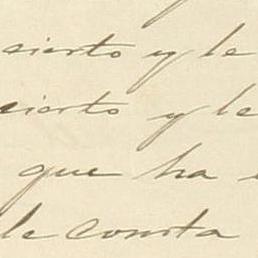 cierto y le
cierto y le
que ha
le consta